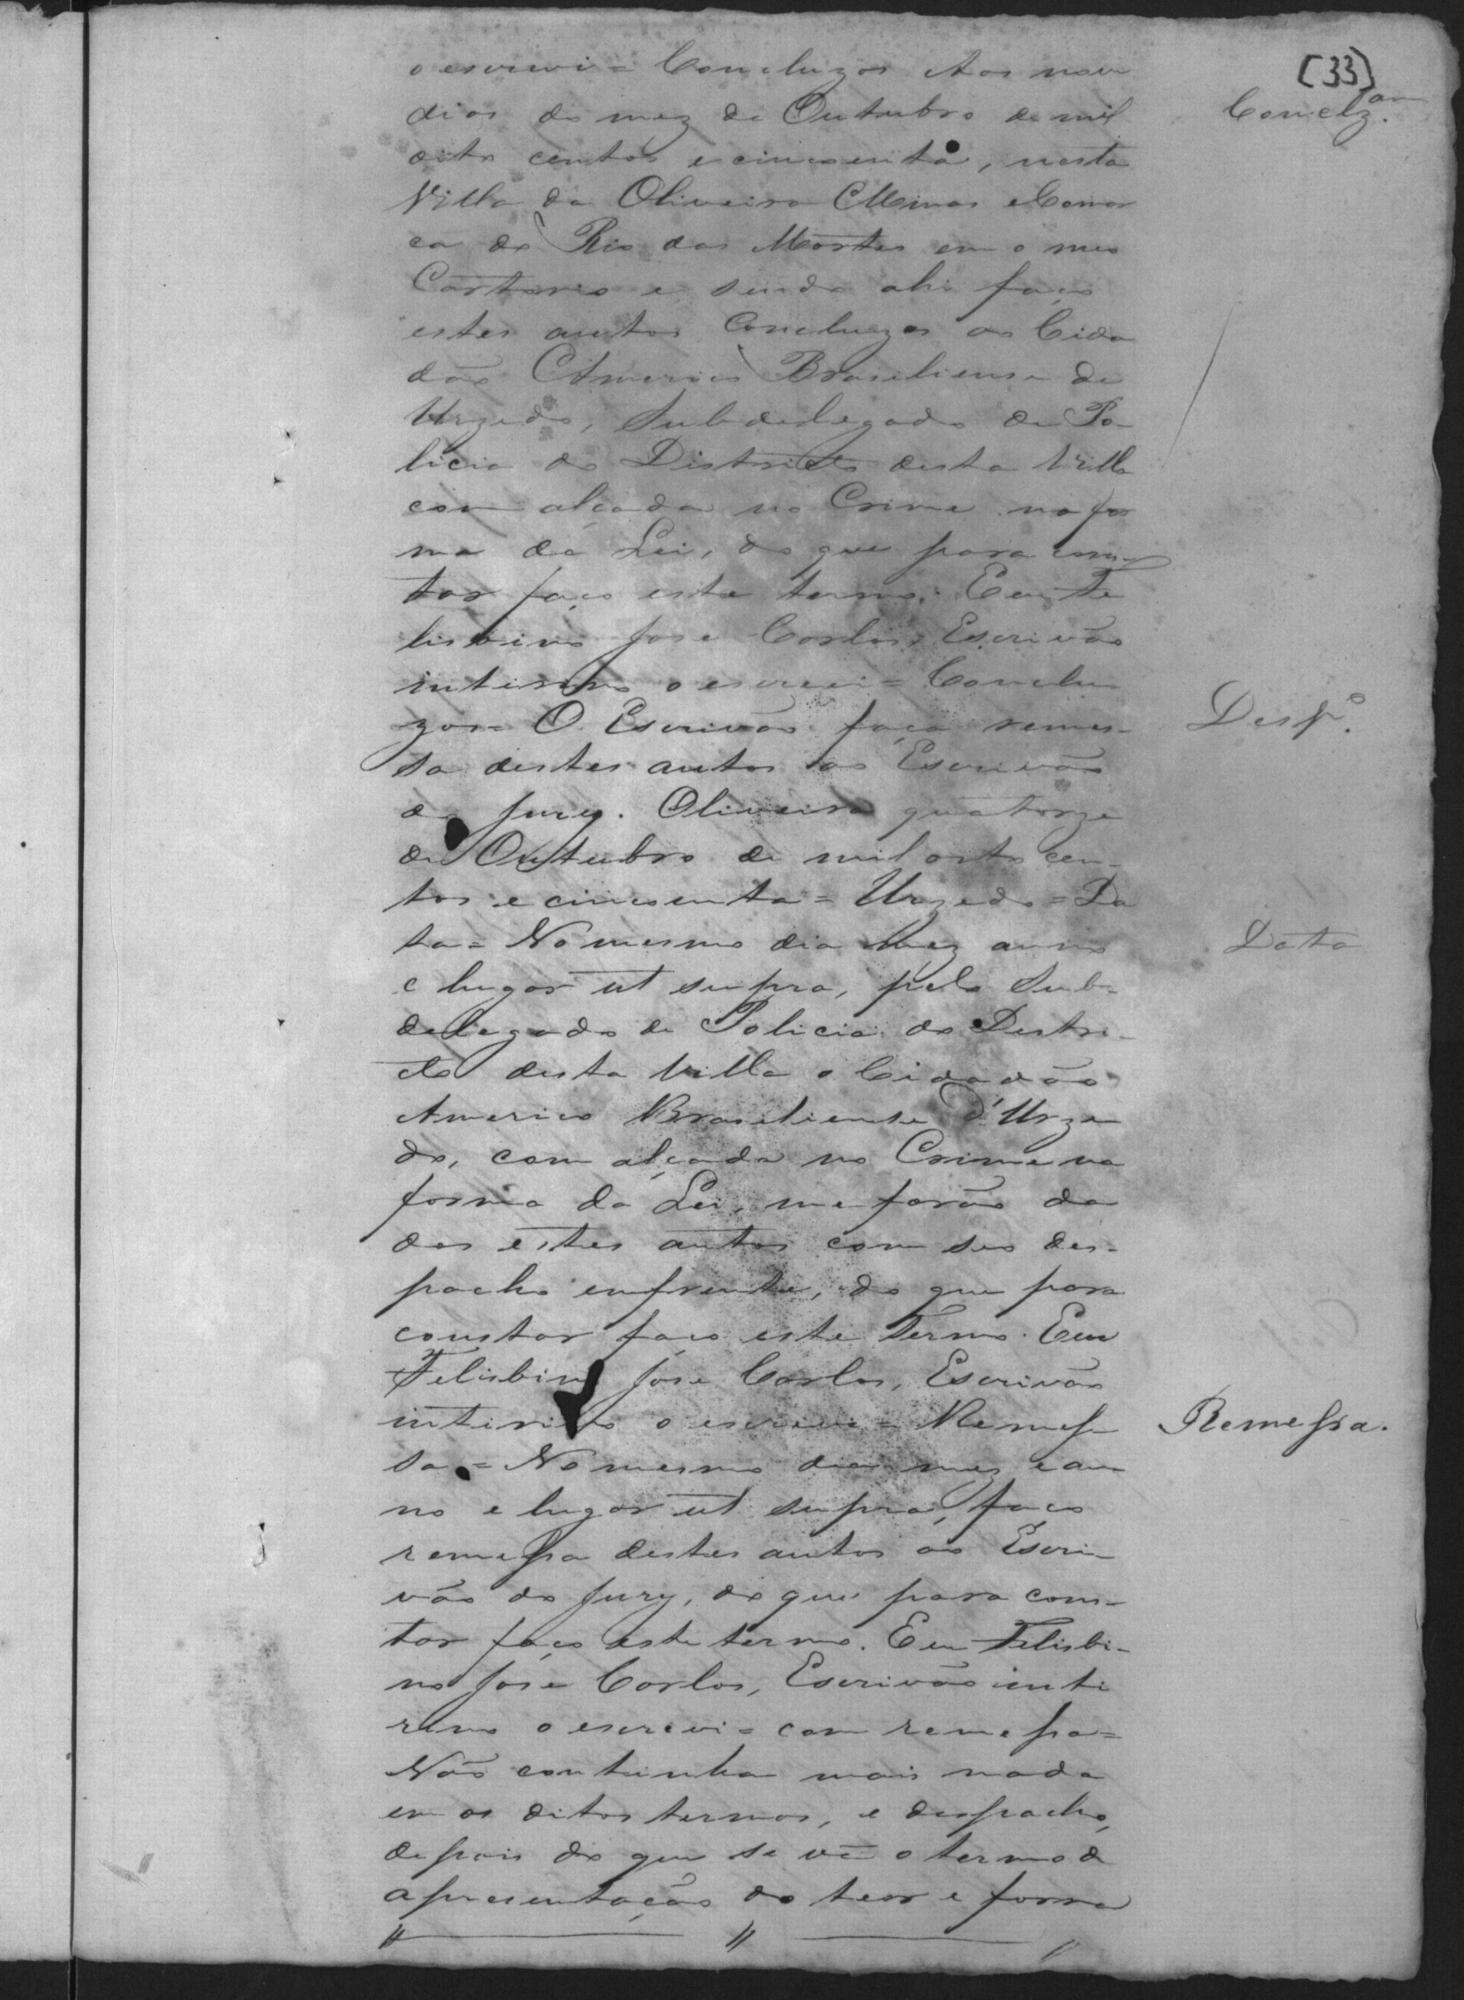 [33]
o escrevi = Concluzos Aos nove
Conclz.am
dias do mez de Outubro de mil
oito centos e cincoenta, nesta
Villa da Oliveira Minas e Comar
ca do Rio das Mortes em o meu
Cartorio e sendo ahi faço
estes autos Concluzos ao Cida
dão Americo Brasiliense de
Urzedo, Subdelegado de Po-
licia do Districto desta Villa
com alçada no Crime na for
ma da Lei, do que para cons-
tar faço este termo. Eeu Fe
lisbino Jose Carlos, Escrivão
interino o escrevi = Conclu
zos = O Escrivão faça remes-
Desp.o
sa destes autos ao Escrivão
do Jury. Oliveira quatorze
de Outubro de mil oito cen-
tos e cincoenta = Urzedo = Da
ta = No mesmo dia mez anno
Data
e lugar ut supra, pelo Sub-
delegado de Policia do Distri-
cto desta Villa o Cidadão
Americo Brasiliense d'Urze
do, com alçada no Crime na
forma da Lei, me forão da
dos estes autos com seo des-
pacho enfrente, do que para
constar faço este Termo. Eeu
Felisbino Jose Carlos, Escrivão
interino o escrevi = Remes
Remessa.
sa = No mesmo dia mez e an
no e lugar ut supra, faço
remessa destes autos ao Escri-
vão do Jury, do que para cons-
tar faço este termo. Eeu Felisbi-
no Jose Carlos, Escrivão inte
rino o escrevi = com remessa =
Não continha mais nada
em os ditos termos, e despacho,
depois do que se vê o termo de
apresentação do teor e forma